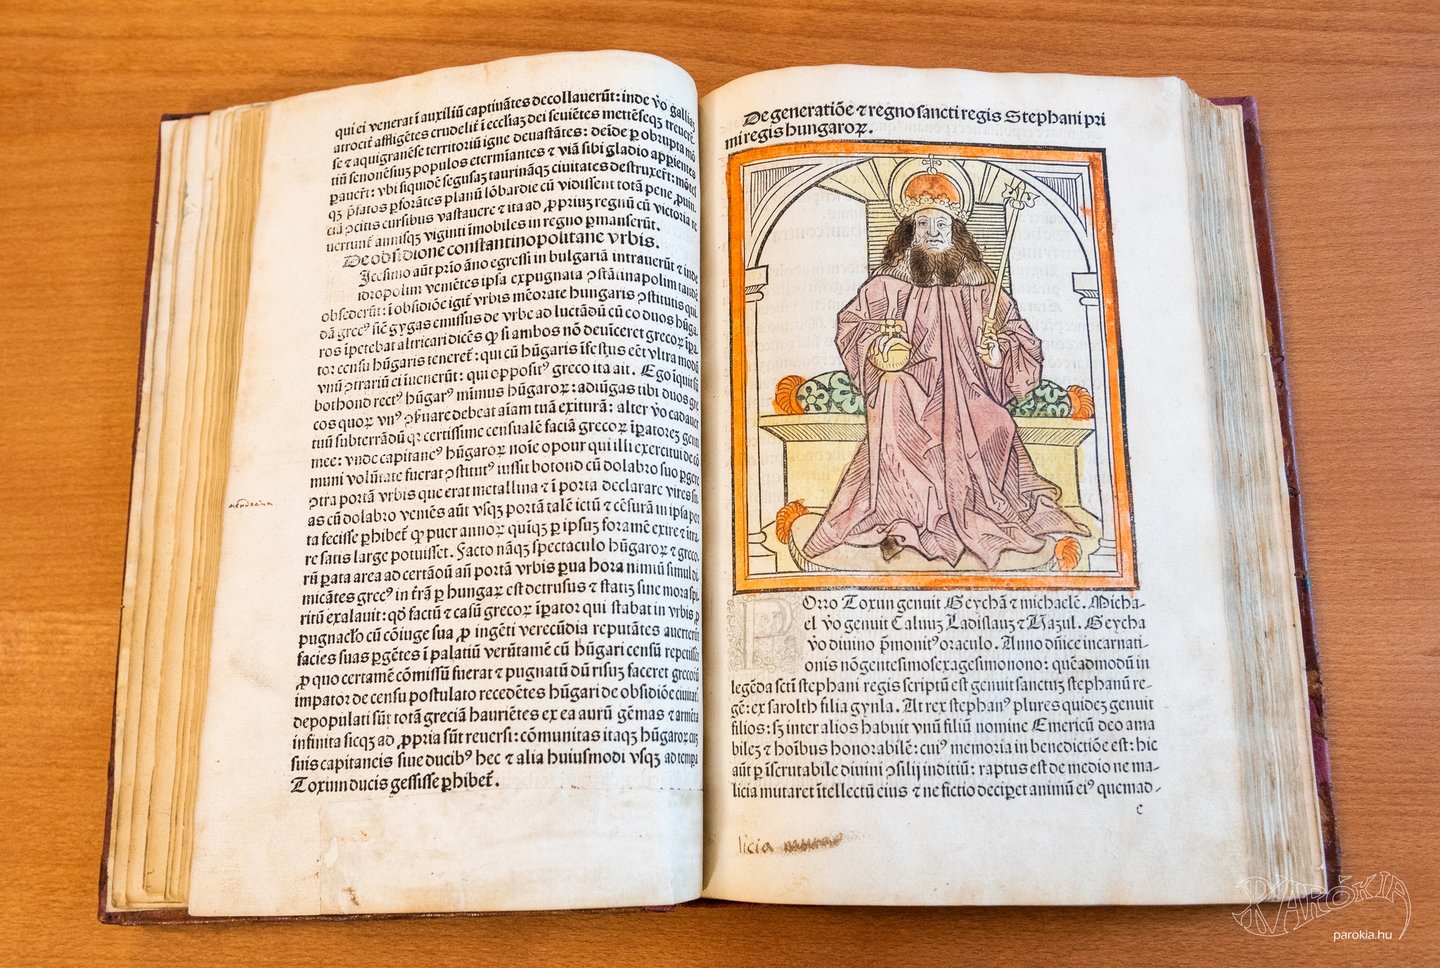 qui ei venerãt ĩ auxiliũ captiuãtes decollauerũt: inde ṽo gallias
atrociť affligẽtes crudeliť ĩ ecclĩaʒ dei ſeuiẽtes metẽſeqʒ treuerẽ.
ſe ⁊ aquigranẽſe territoriũ igne deuaſtãtes: deĩde ꝑ obrupta mõ
tiũ ſenonẽſiuʒ populos etermĩantes ⁊ viã ſibi gladio apperientes
ꝑauerť: vbi ſiquidẽ seguſaʒ taurinãqʒ ciuitates deſtruxerť: mõtes
qʒ p̃fatos ꝑforãtes planũ lõbardie cũ vidiſſent totã pene ꝓuin.
ciã ꝯcitus curſibus vaſtauere ⁊ ita ad ꝓpriuʒ regnũ cũ victoria re
uertunť anniſqʒ viginti ĩmobiles in regno ꝑmanſerũt.
De obſidione conſtantinopolitane vrbis.
Iceſimo aũt prĩo ãno egreſſi in bulgariã intrauerũt ⁊ inde
idropolim veniẽtes ipſa expugnata ꝯſtãtinapolim tandẽ
obſederũt: ĩ obſidiõe igiť vrbis mẽorate hungaris ꝯſtitutis qui.
dã grecꝰ ſũe gygas emiſſus de vrbe ad luctãdũ cũ eo duos hũga.
ros ĩpetebat altricari dicẽs ꝙ ſi ambos nõ deuiceret grecoꝝ ĩꝑa
tor cenſu hũgaris tenereť: qui cũ hũgaris ĩfeſtus eẽt vltra modũ
vnũ ꝯtrariũ ei iuenerũt: qui oppoſitꝰ greco ita ait. Ego ĩquit ſũ
bothond rectꝰ hũgarꝰ minimus hũgaroꝝ: adiũgas tibi duos gre
cos quoꝝ vnꝰ ꝯſuare debeat aĩam tuã exiturã: alter ṽo cadauer
tuũ ſubterrãdũ qꝛ certiſſime cenſualẽ faciã grecoꝝ ĩꝑatoreʒ genti
mee: vnde capitanẽꝰ hũgaroꝝ noĩe opour qui illi exercitui de cõ
muni volũtate fuerat ꝯſtitutꝰ iuſſit botond cũ dolabro ſuo ꝑgere
ꝯtra portã vrbis que erat metallina ⁊ ĩ porta declarare vires ſu
as cũ dolabro veniẽs aũt vſqʒ portã talẽ ictũ ⁊ cẽſurã in ipſa por
ta feciſſe ꝑhibeť ꝙ puer annoꝝ quiqʒ ꝑ ipſuʒ foramẽ exire ⁊ itra
re ſatis large potuiſſet. Facto nãqʒ ſpectaculo hũgaroꝝ ⁊ greco.
rũ ꝑata area ad certãdũ añ portã vrbis ꝑ vna hora nimiũ ſimul di
micãtes grecꝰ in terrã ꝑ hungaꝝ eſt detruſus ⁊ ſtatiʒ ſine mora ſpi
ritũ exalauit: qđ factũ ⁊ caſũ grecoꝝ ĩꝑator qui ſtabat in vrbis ꝓ
pugnacło cũ cõiuge ſua ꝓ ingẽti verecũdia reputãtes auertẽtes
facies ſuas ꝑgẽtes ĩ palatiũ verũtamẽ cũ hũgari cenſũ repetiſſet
ꝓ quo certamẽ cõmiſſũ fuerat ⁊ pugnatũ dũ riſuʒ faceret grecoꝝ
impator de cenſu poſtulato recedẽtes hũgari de obſidiõe ciuitatis
depopulati ſũt totã greciã hauriẽtes ex ea aurũ gẽmas ⁊ armẽta
infinita ſicqʒ ad ꝓpria ſũt reuerſi: cõmunitas itaqʒ hũgaroꝝ cuʒ
ſuis capitaneis ſiue ducibꝰ hec ⁊ alia huiuſmodi vſqʒ ad tempa
Toxum ducis geſſiſſe ꝑhibeť.
De generatiõe ⁊ regno ſancti regis Stephani pri
mi regis hungaroꝝ.
POrro Toxun genuit Geychã ⁊ michaelẽ. Micha-
el ṽo genuit Caluuʒ Ladiſlauʒ ⁊ Vaʒul. Geycha
ṽo diuino p̃monitꝰ oraculo. Anno dñice incarnati-
onis nõgenteſimoſexageſimonono: quẽadmodũ in
legẽda ſctĩ ſtephani regis ſcriptũ eſt genuit ſanctuʒ ſtephanũ re-
gẽ: ex ſarolth filia gynla. At rex ſtephanꝰ plures quideʒ genuit
filios: ſʒ inter alios habuit vnũ filiũ nomine Emericũ deo ama
bileʒ ⁊ hoĩbus honorabilẽ: cuiꝰ memoria in benedictiõe eſt: hic
aũt ꝑ iſcrutabile diuini ꝯſilij inditiũ: raptus eſt de medio ne ma-
licia mutaret ĩtellectũ eius ⁊ ne fictio deciꝑet animũ eiꝰ quemad-
c
licia
PARÓKIA
parokia.hu